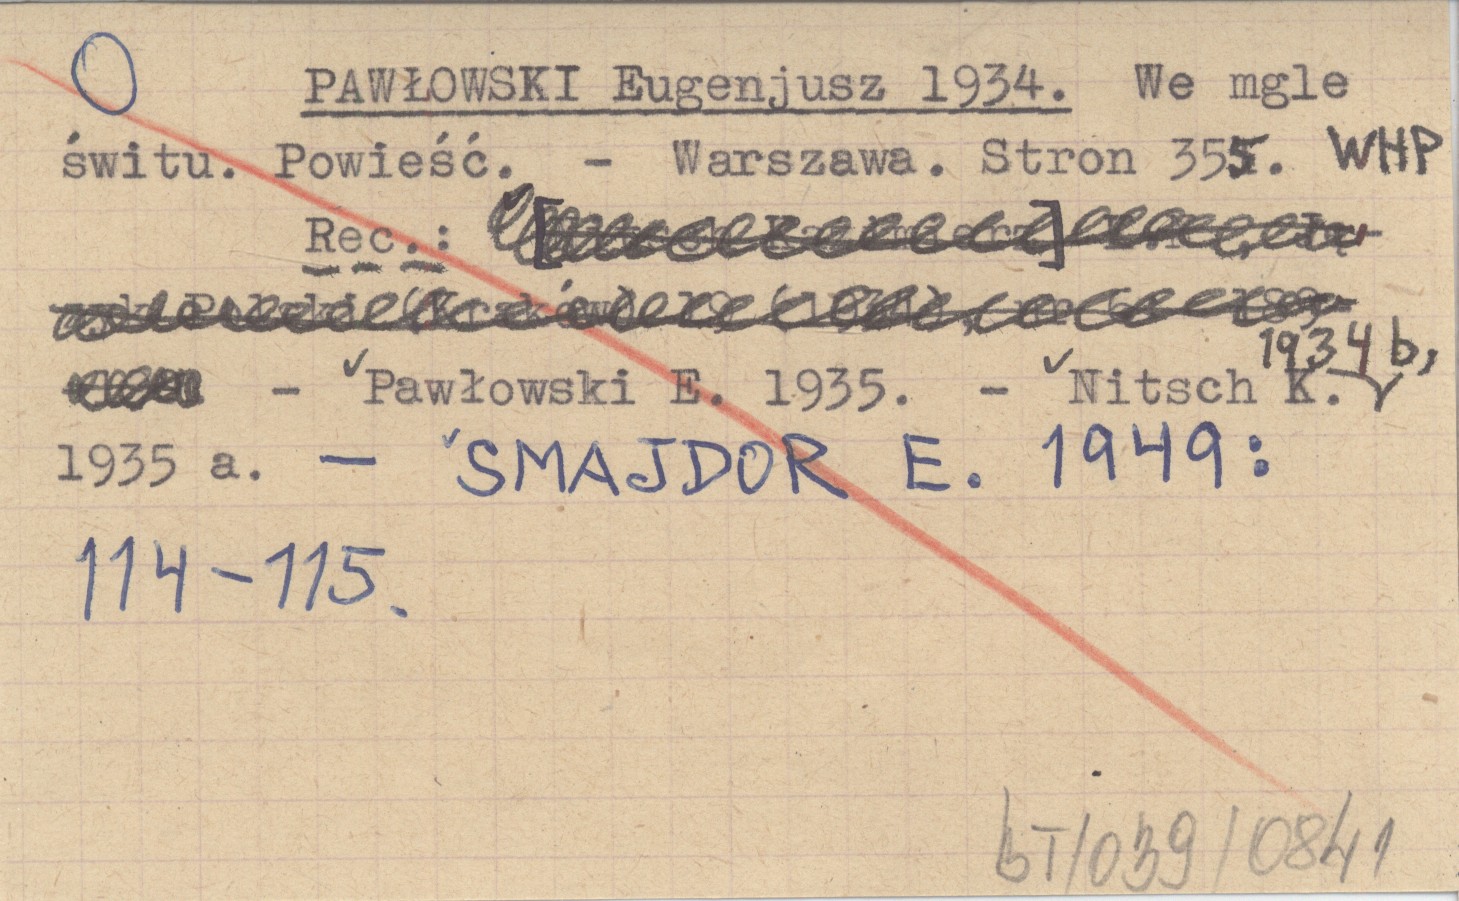 PAWŁOWSKI Eugenjusz 1934. We mgle
świtu. Powieść. - Warszawa. Stron 355. WHP
Rec.: [ ]
- Pawłowski E. 1935. - Nitsch K. 1934 b,
1935 a. - SMAJDOR E. 1949:
114-115.
bT/039/0841